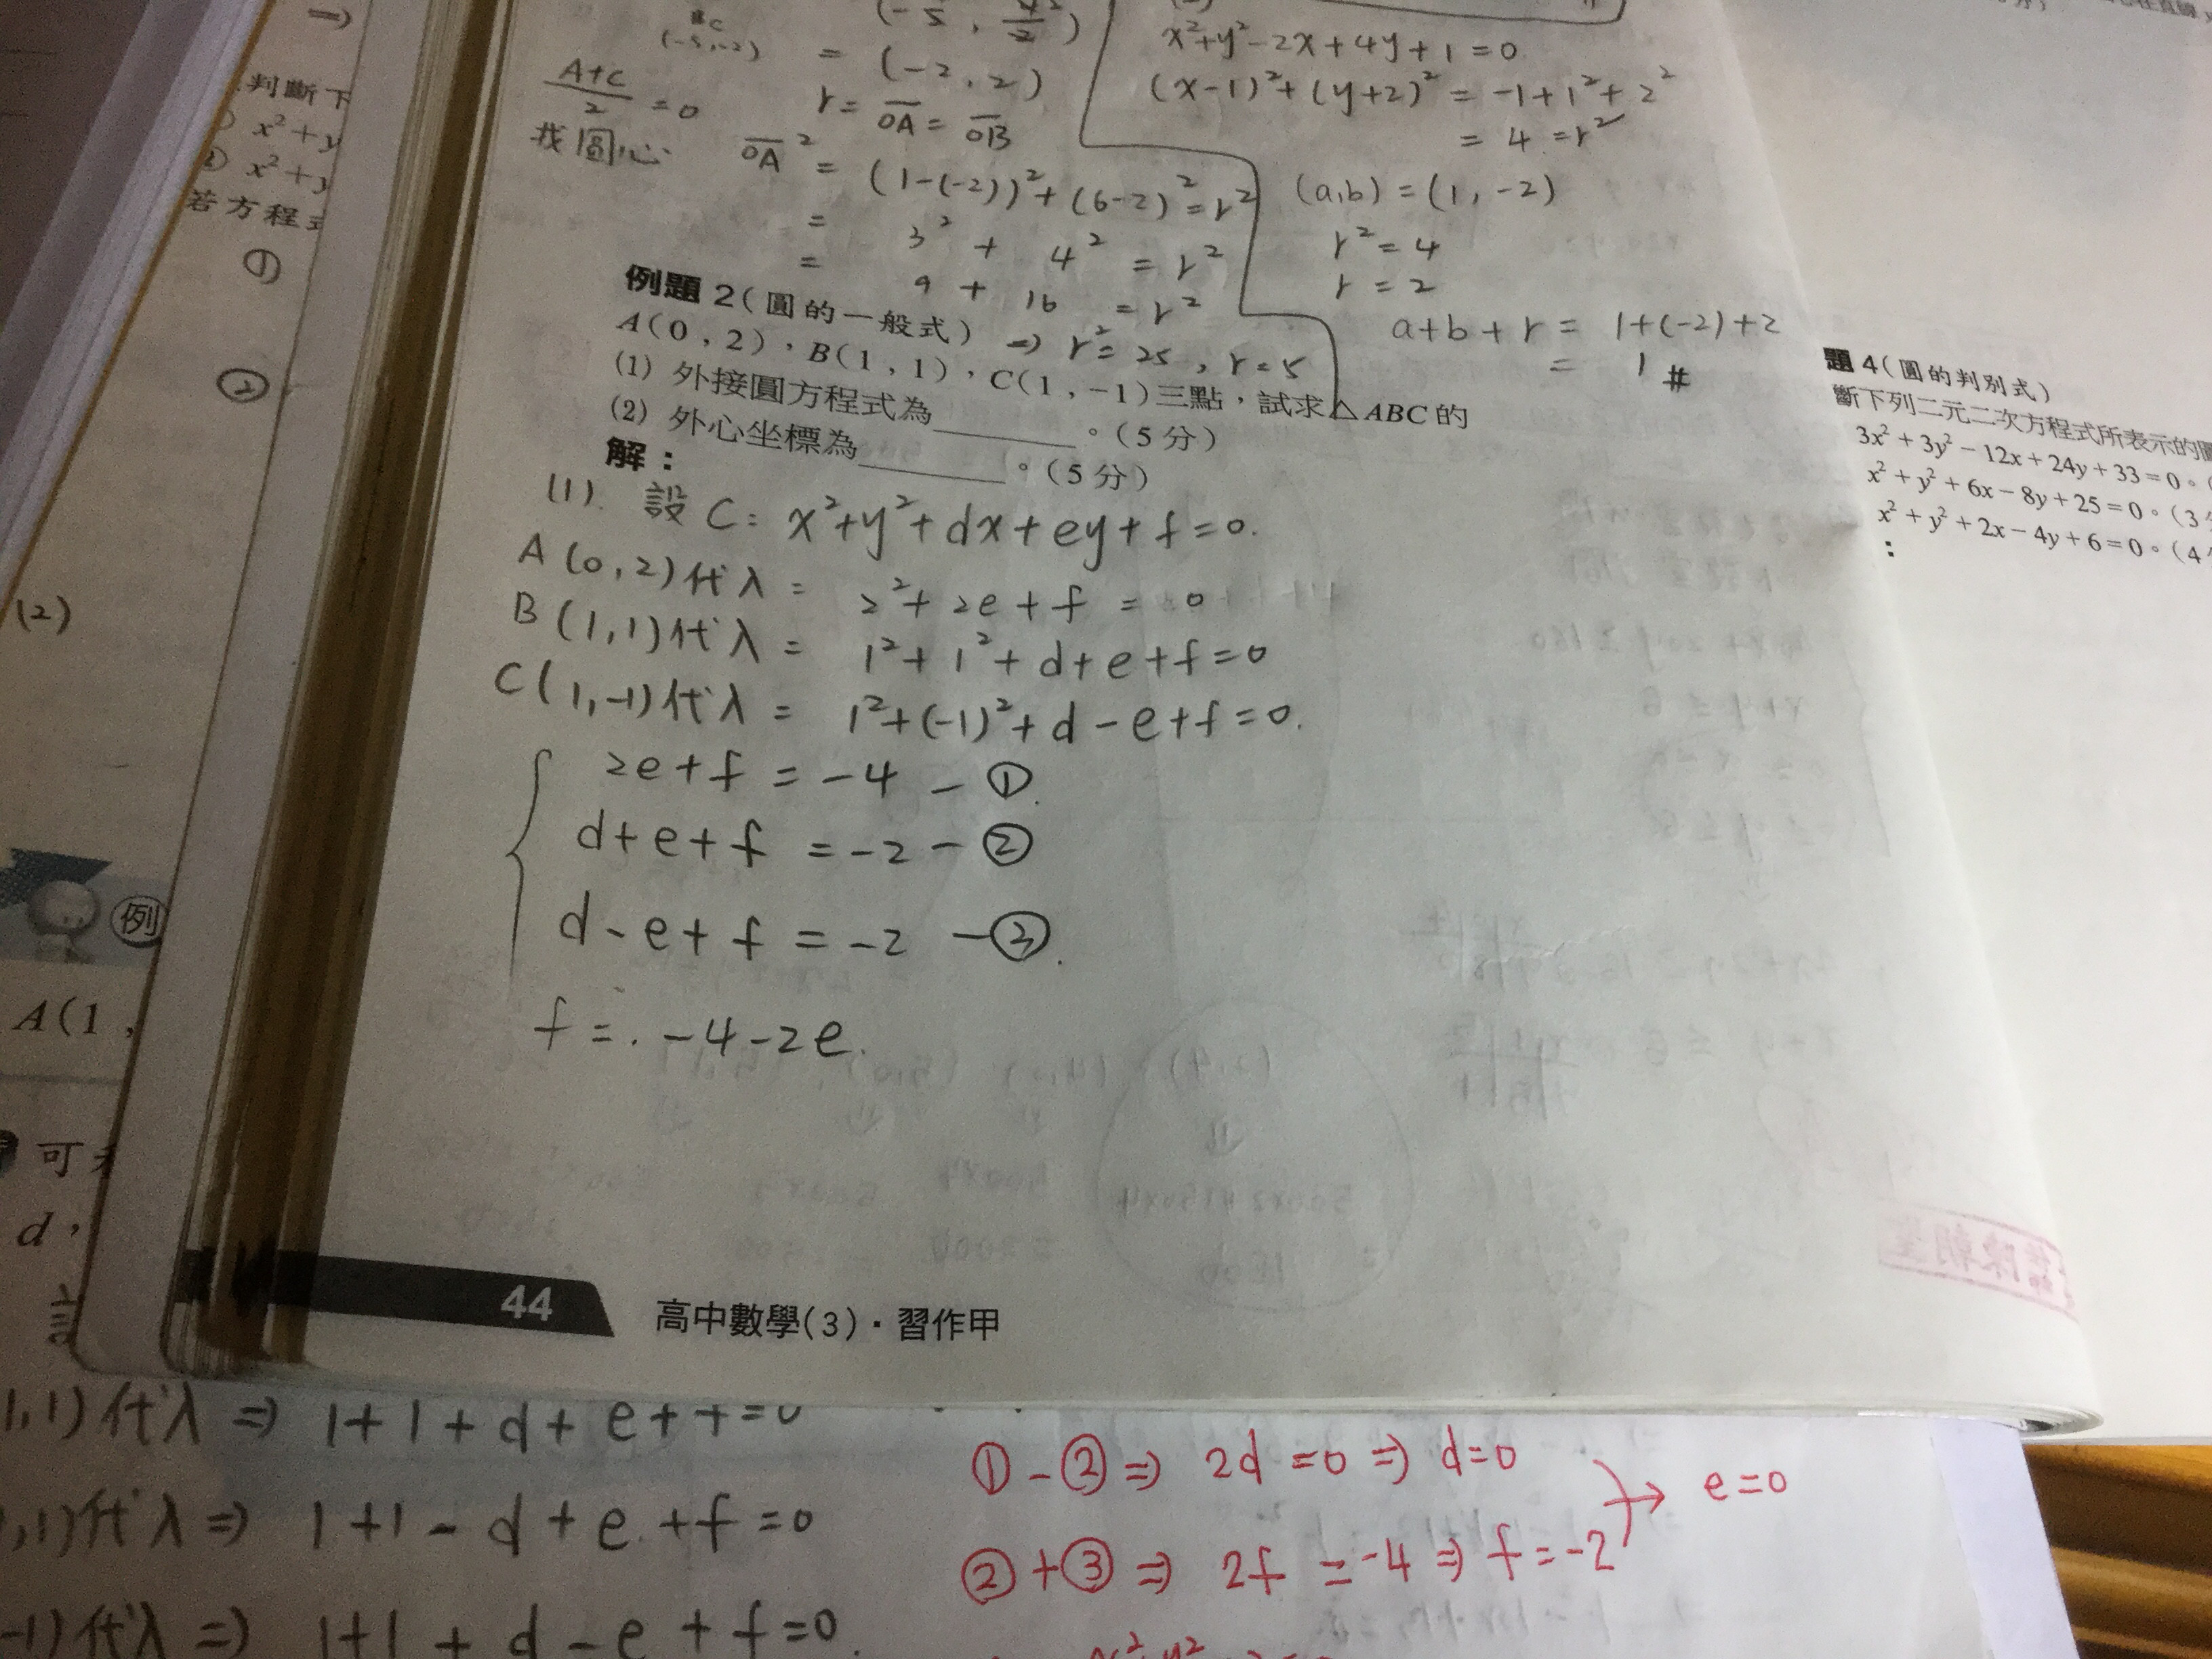 判斷下
x²+y
② x²+y
若方程式
①
②
(2)
例
A(1,
可
d,
(-5,-2)
= (-2,2)
A+C/2 = 0
r = OA = OB
找圓心
OA² = (1-(-2))²+(6-2)²=r²
= 3² + 4² = r²
= 9 + 16 = r²
⇒ r²=25, r=5
x²+y²-2x+4y+1=0
(x-1)²+(y+2)² = -1+1²+2²
= 4 = r²
(a,b) = (1,-2)
r²=4
r=2
a+b+r = 1+(-2)+2
= 1 #
例題 2(圓的一般式)
A(0,2),B(1,1),C(1,-1)三點,試求△ABC的
(1) 外接圓方程式為________。(5分)
(2) 外心坐標為________。(5分)
解:
(1). 設 C: x²+y²+dx+ey+f=0.
A(0,2)代入 = 2²+2e+f = 0
B(1,1)代入 = 1²+1²+d+e+f=0
C(1,-1)代入 = 1²+(-1)²+d-e+f=0.
2e+f = -4 - ①
d+e+f = -2 - ②
d-e+f = -2 - ③
f = -4-2e
44 高中數學(3)·習作甲
題 4(圓的判別式)
斷下列二元二次方程式所表示的圖
3x²+3y²-12x+24y+33=0。(
x²+y²+6x-8y+25=0。(3
x²+y²+2x-4y+6=0。(4
:
1,1)代入 ⇒ 1+1+d+e+f=0
,1)代入 ⇒ 1+1-d+e+f=0
-1)代入 ⇒ 1+1+d-e+f=0
①-② ⇒ 2d=0 ⇒ d=0
②+③ ⇒ 2f=-4 ⇒ f=-2
→ e=0